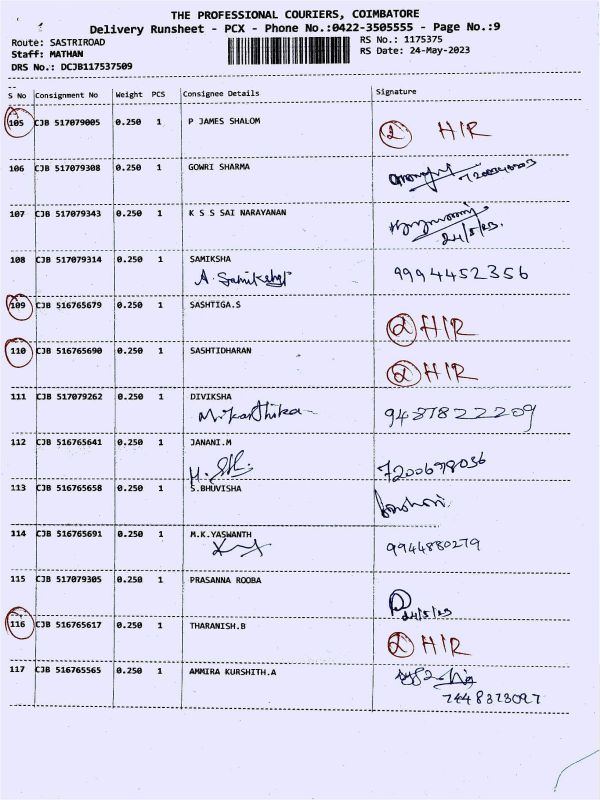 THE PROFESSIONAL COURIERS, COIMBATORE
Delivery Runsheet - PCX - Phone No.:0422-3505555 - Page No.:9
Route: SASTRIROAD RS No.: 1175375
Staff: MATHAN RS Date: 24-May-2023
DRS No.: DCJB117537509
S No Consignment No Weight PCS Consignee Details Signature
105 CJB 517079005 0.250 1 P JAMES SHALOM
2 H/R
106 CJB 517079308 0.250 1 GOWRI SHARMA
107 CJB 517079343 0.250 1 K S S SAI NARAYANAN
24/5/23.
108 CJB 517079314 0.250 1 SAMIKSHA
A. Samiksha 9994452356
109 CJB 516765679 0.250 1 SASHTIGA.S
2 H/R
110 CJB 516765690 0.250 1 SASHTIDHARAN
2 H/R
111 CJB 517079262 0.250 1 DIVIKSHA
M.karthika 9487822209
112 CJB 516765641 0.250 1 JANANI.M
7200698056
113 CJB 516765658 0.250 1 S.BHUVISHA
114 CJB 516765691 0.250 1 M.K.YASWANTH
9944880279
115 CJB 517079305 0.250 1 PRASANNA ROOBA
24/5/23
116 CJB 516765617 0.250 1 THARANISH.B
2 H/R
117 CJB 516765565 0.250 1 AMMIRA KURSHITH.A
7448373097